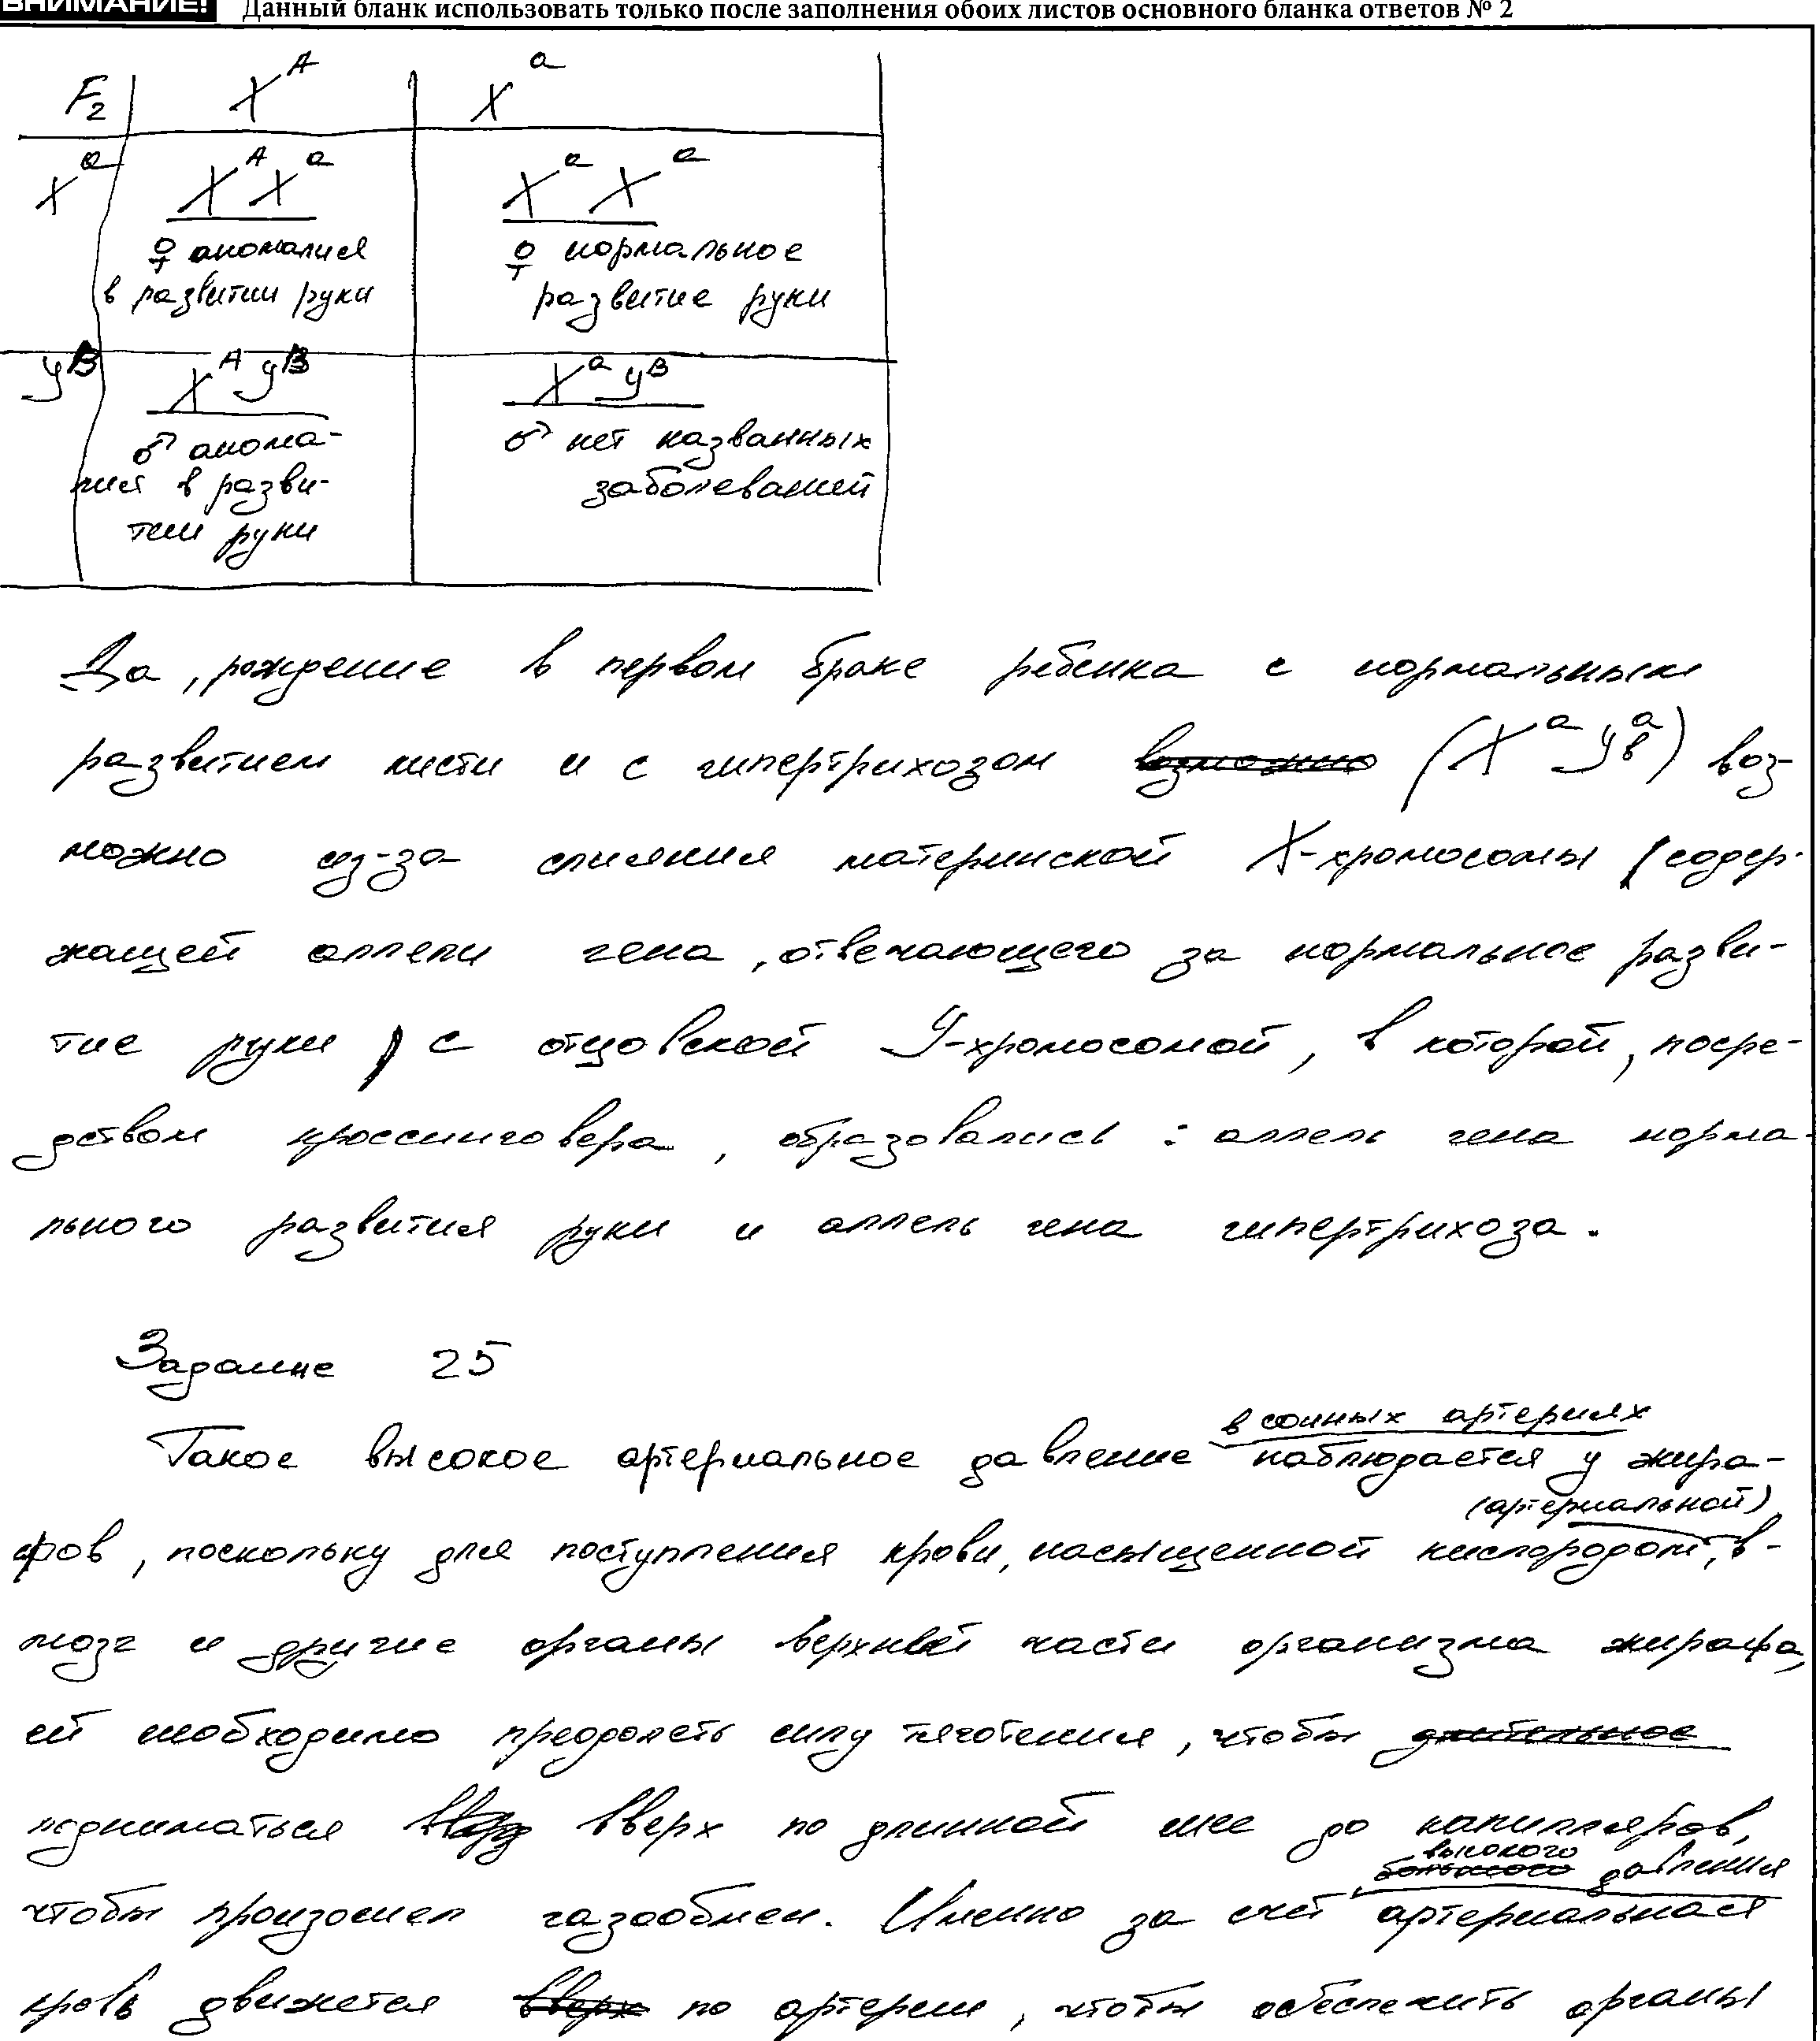 ВНИМАНИЕ! Данный бланк использовать только после заполнения обоих листов основного бланка ответов № 2
F₂ Xᴬ Xᵃ
Xᵃ XᴬXᵃ XᵃXᵃ
♀ аномалия ♀ нормальное
в развитии руки развитие руки
Yᴮ XᴬYᴮ XᵃYᴮ
♂ анома- ♂ нет названных
лия в разви- заболеваний
тии руки
Да, рождение в первом браке ребенка с нормальным
развитием кисти и с гипертрихозом возможно (XᵃYᵃb) воз-
можно из-за слияния материнской X-хромосомы (содер-
жащей аллели гена, отвечающего за нормальное разви-
тие руки) с отцовской Y-хромосомой, в которой, посре-
дством кроссинговера, образовались: аллель гена норма-
льного развития руки и аллель гена гипертрихоза.
Задание 25
в сонных артериях
Такое высокое артериальное давление наблюдается у жира-
(артериальной)
фов, поскольку для поступления крови, насыщенной кислородом, в
мозг и другие органы верхней части организма жирафа,
ей необходимо преодолеть силу тяготения, чтобы длительное
подниматься вверх по длинной шее до капилляров,
высокого
большого давления
чтобы произошел газообмен. Именно за счёт артериальная
кровь движется вверх по артерии, чтобы обеспечить органы